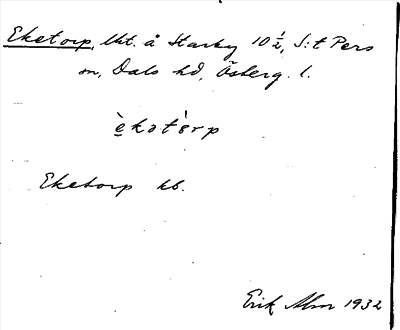 Eketorp, lht. å Starby 10 ½, S:t Pers
sn, Dals hd, Österg. l.
èkətèrp
Eketorp kb.
Erik Abm 1932